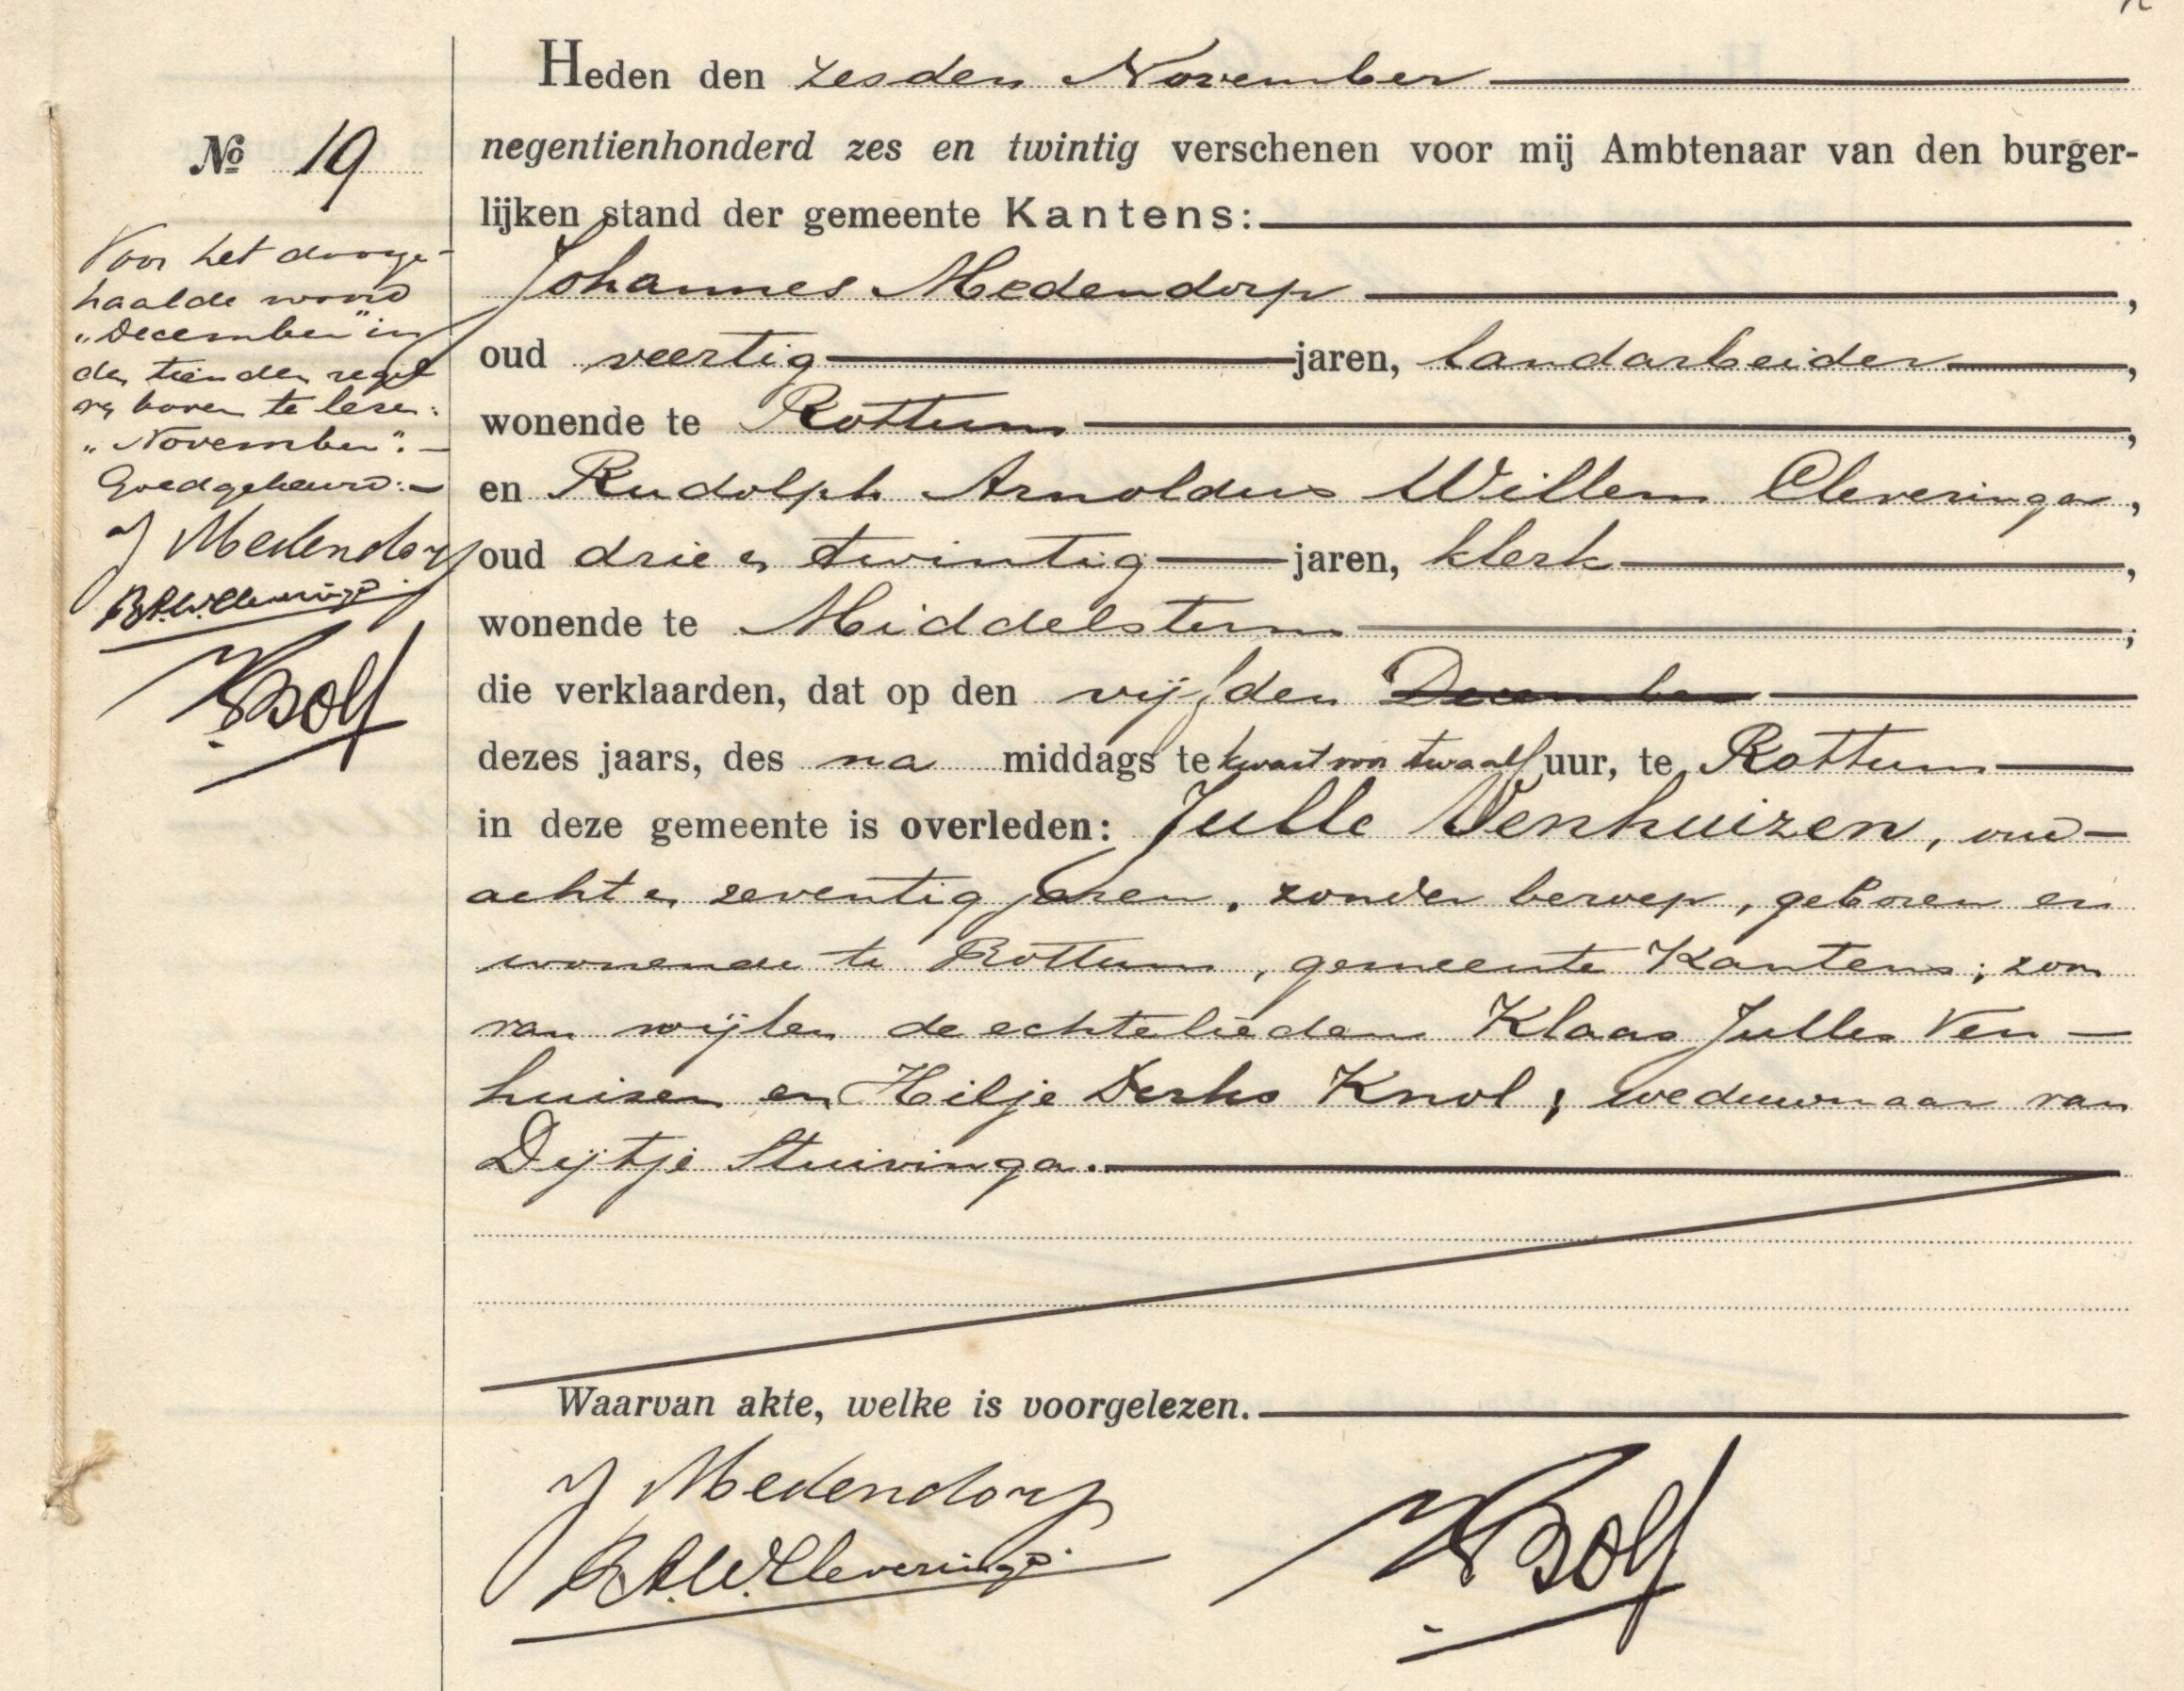 Heden den zesden November
No 19
negentienhonderd zes en twintig verschenen voor mij Ambtenaar van den burger-
lijken stand der gemeente Kantens:
Johannes Medendorp,
oud veertig jaren, landarbeider,
wonende te Rottum,
en Rudolph Arnoldus Willem Cleveringa,
oud drie en twintig jaren, klerk,
wonende te Middelstum;
die verklaarden, dat op den vijfden December
dezes jaars, des na middags te kwart voor twaalf uur, te Rottum
in deze gemeente is overleden: Julle Venhuizen, oud
acht en zeventig jaren, zonder beroep, geboren en
wonende te Rottum, gemeente Kantens; zoon
van wijlen de echtelieden Klaas Julles Ven-
huizen en Hilje Derks Knol; weduwnaar van
Dijtje Stuivinga.
Voor het doorge-
haalde woord
"December" in
den tienden regel
van boven te lezen:
"November".
Goedgekeurd:
J Medendorp
R.A.W. Cleveringa
Bolt
Waarvan akte, welke is voorgelezen.
J Medendorp
R.A.W. Cleveringa
Bolt